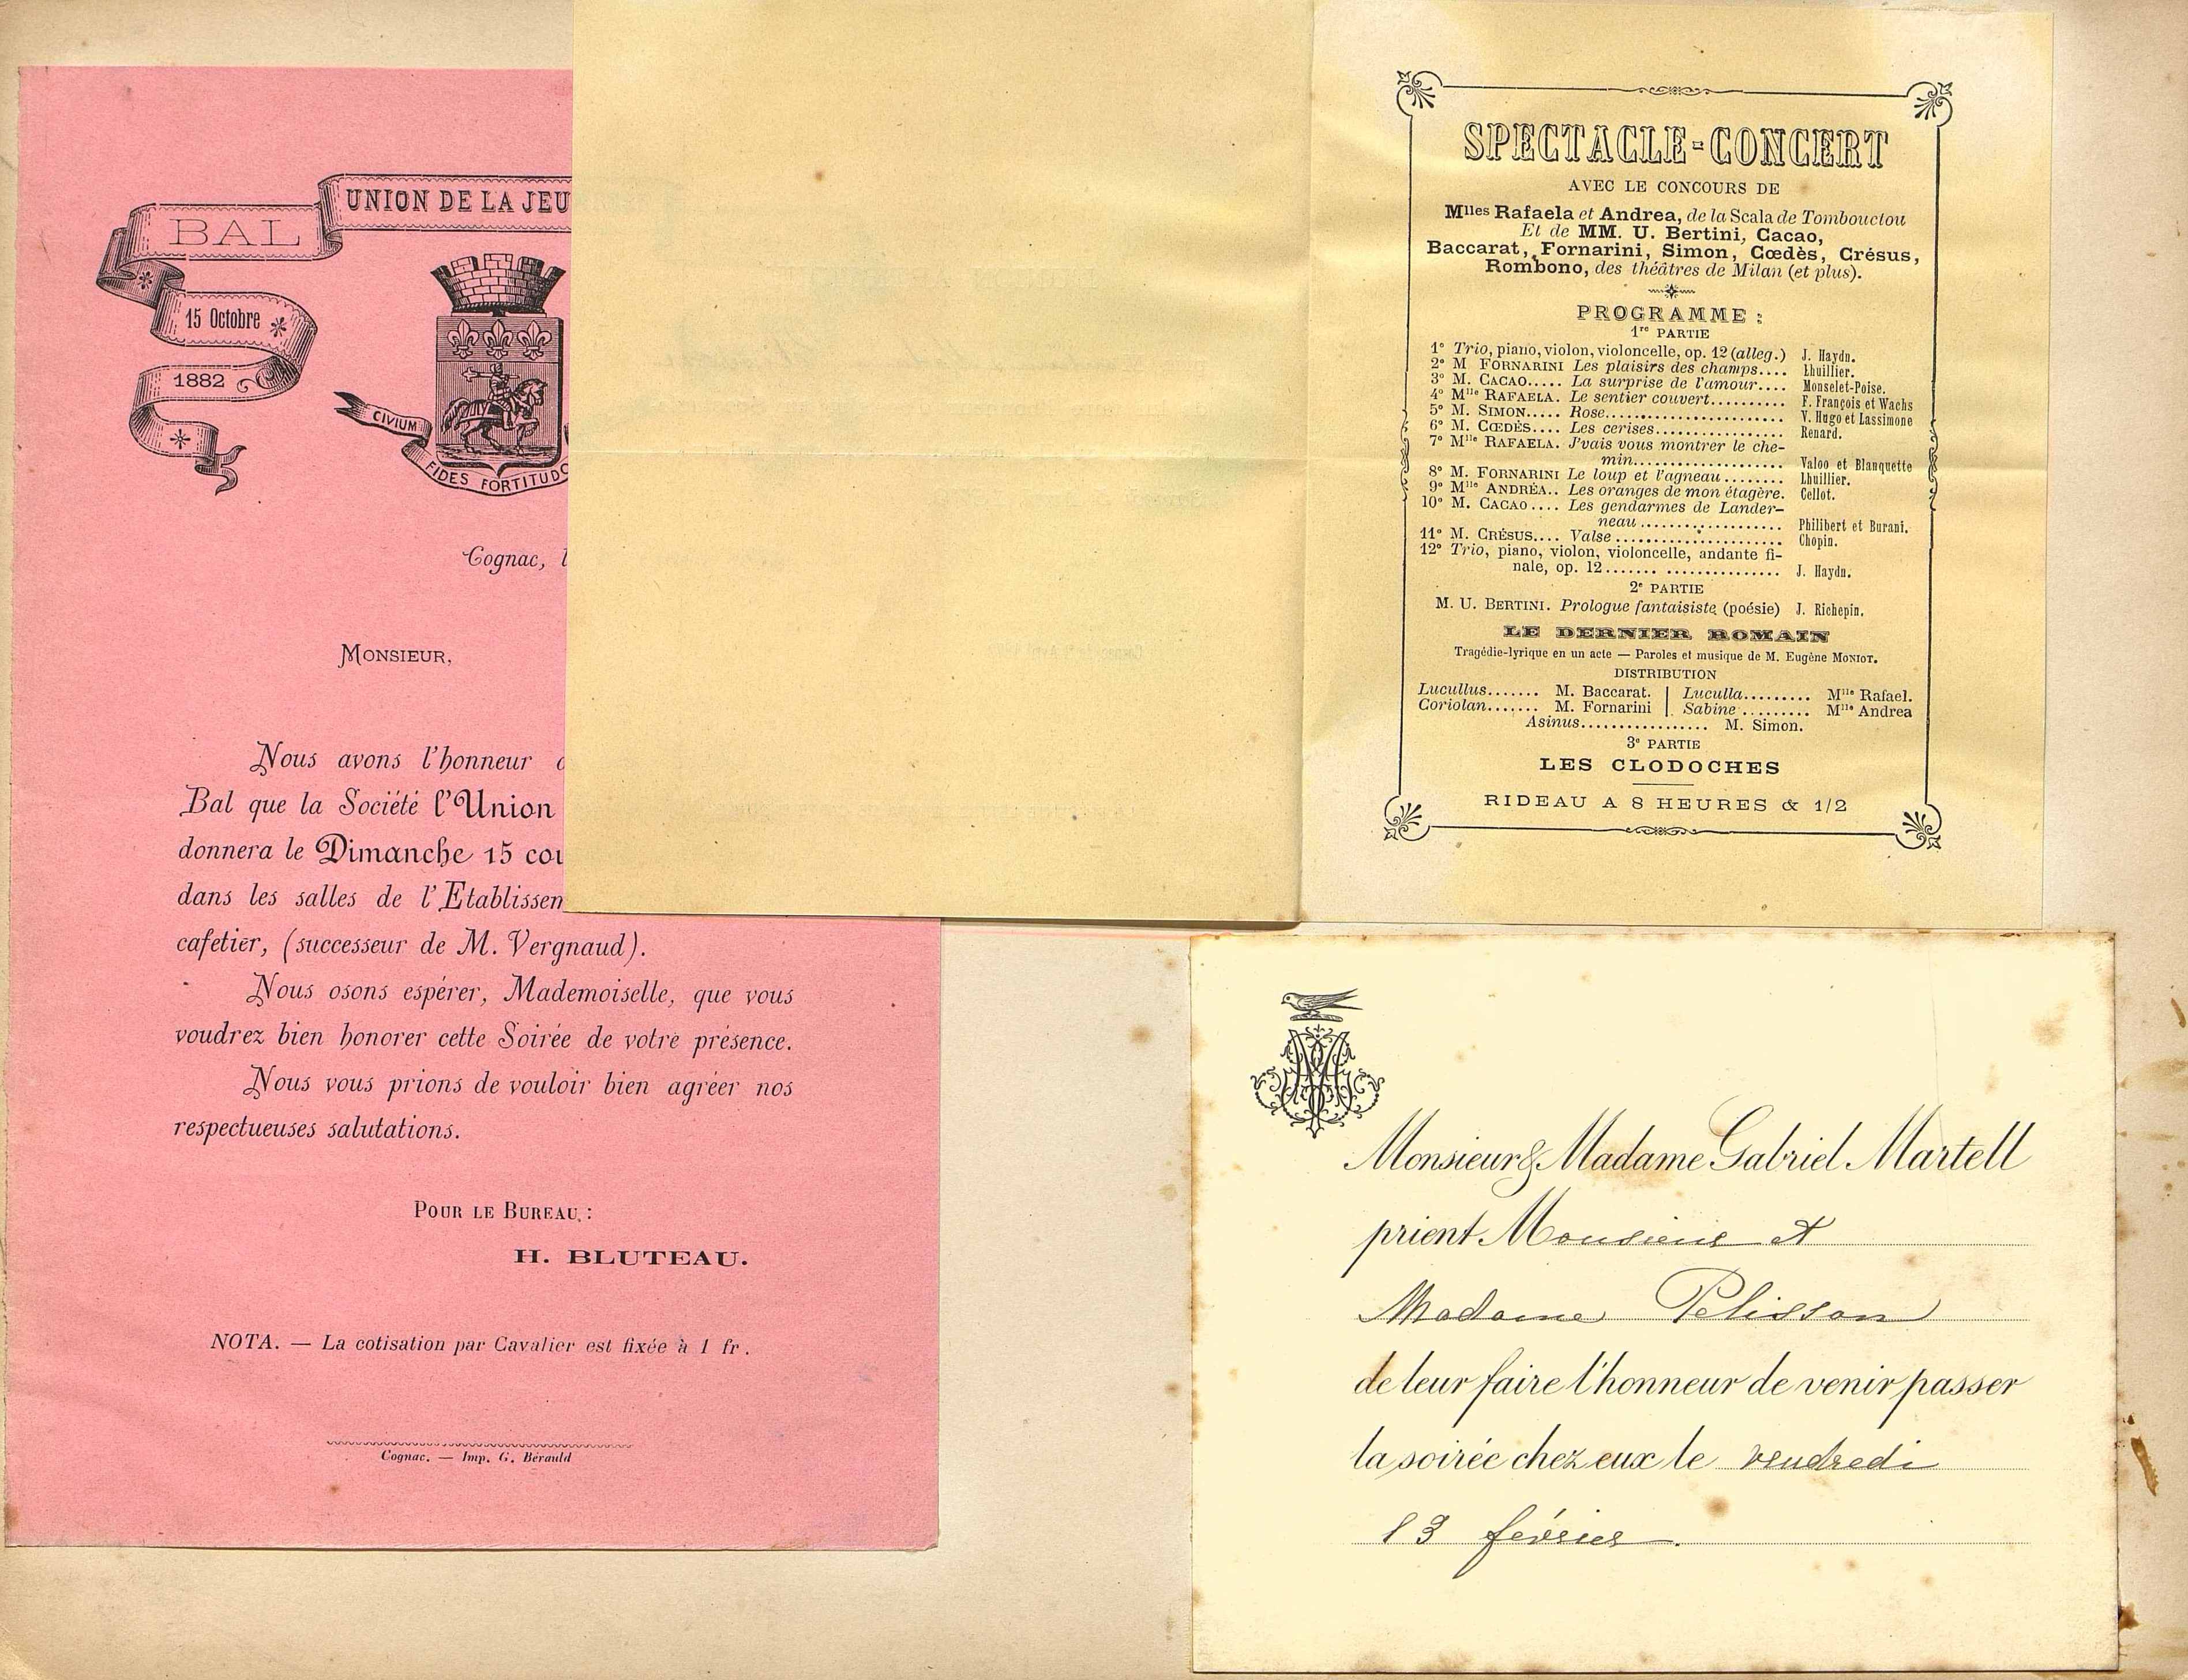 BAL
UNION DE LA JEU
15 Octobre
1882
CIVIUM
FIDES FORTITUDO
Cognac, l
MONSIEUR,
Nous avons l'honneur
Bal que la Société l'Union
donnera le Dimanche 15 cou
dans les salles de l'Etablissem
cafetier, (successeur de M. Vergnaud).
Nous osons espérer, Mademoiselle, que vous
voudrez bien honorer cette Soirée de votre présence.
Nous vous prions de vouloir bien agréer nos
respectueuses salutations.
POUR LE BUREAU :
H. BLUTEAU.
NOTA. — La cotisation par Cavalier est fixée à 1 fr.
Cognac. — Imp. G. Bérauld
SPECTACLE-CONCERT
AVEC LE CONCOURS DE
Mlles Rafaela et Andrea, de la Scala de Tombouctou
Et de MM. U. Bertini, Cacao,
Baccarat, Fornarini, Simon, Cœdès, Crésus,
Rombono, des théâtres de Milan (et plus).
PROGRAMME :
1re PARTIE
1° Trio, piano, violon, violoncelle, op. 12 (alleg.) J. Haydn.
2° M FORNARINI Les plaisirs des champs.... Lhuillier.
3° M. CACAO..... La surprise de l'amour.... Monselet-Poise.
4° Mlle RAFAELA. Le sentier couvert.......... F. François et Wachs
5° M. SIMON..... Rose....................... V. Hugo et Lassimone
6° M. CŒDÈS.... Les cerises................. Renard.
7° Mlle RAFAELA. J'vais vous montrer le che-
min.................... Valoo et Blanquette
8° M. FORNARINI Le loup et l'agneau........ Lhuillier.
9° Mlle ANDRÉA.. Les oranges de mon étagère. Cellot.
10° M. CACAO.... Les gendarmes de Lander-
neau................... Philibert et Burani.
11° M. CRÉSUS.... Valse...................... Chopin.
12° Trio, piano, violon, violoncelle, andante fi-
nale, op. 12....... ............... J. Haydn.
2e PARTIE
M. U. BERTINI. Prologue fantaisiste (poésie) J. Richepin.
LE DERNIER ROMAIN
Tragédie-lyrique en un acte — Paroles et musique de M. Eugène MONIOT.
DISTRIBUTION
Lucullus....... M. Baccarat. | Luculla......... Mlle Rafael.
Coriolan....... M. Fornarini | Sabine......... Mlle Andrea
Asinus................. M. Simon.
3e PARTIE
LES CLODOCHES
RIDEAU A 8 HEURES & 1/2
Monsieur & Madame Gabriel Martell
prient Monsieur et
Madame Pelisson
de leur faire l'honneur de venir passer
la soirée chez eux le vendredi
13 février.